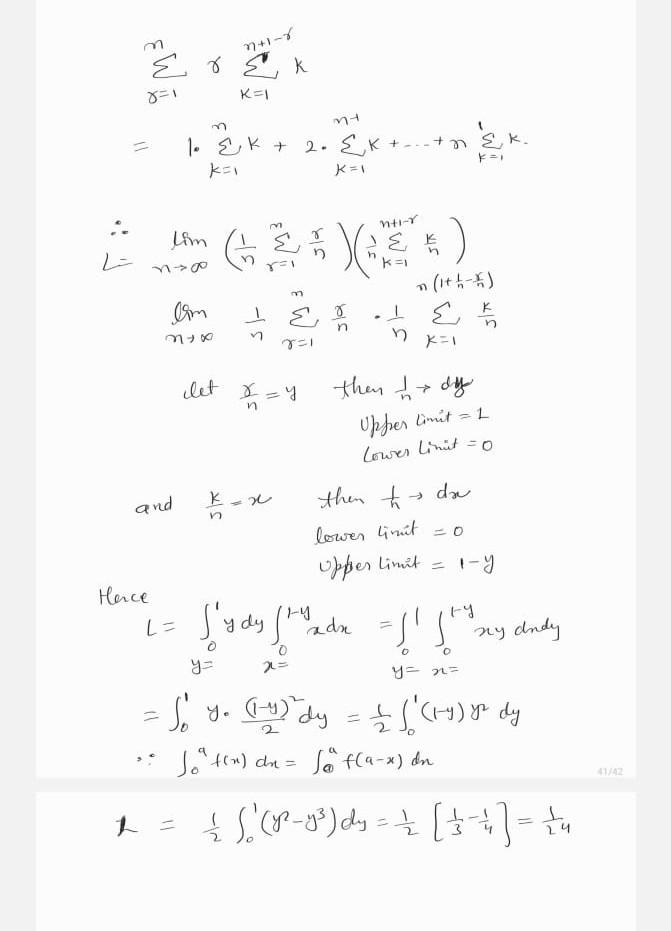 n n+1-r
Σ r Σ k
r=1 K=1
= 1. Σ K + 2. Σ K + ... + n Σ K.
n n-1 1
k=1 k=1 k=1
∴ L = lim n→∞ (1/n Σ r/n)(1/n Σ k/n)
n n+1-r
r=1 k=1
n(1+1/n-r/n)
lim n→∞ 1/n Σ r/n . 1/n Σ k/n
n
r=1 k=1
let r/n = y then 1/n → dy
Upper limit = 1
Lower limit = 0
and k/n = x then 1/n → dx
lower limit = 0
Upper limit = 1-y
Hence
L = ∫₀¹ y dy ∫₀^(1-y) x dx = ∫₀¹ ∫₀^(1-y) xy dx dy
y= x= y= x=
= ∫₀¹ y. (1-y)²/2 dy = 1/2 ∫₀¹ (1-y) y² dy
∵ ∫₀^a f(x) dx = ∫₀^a f(a-x) dx
41/42
L = 1/2 ∫₀¹ (y²-y³) dy = 1/2 [1/3 - 1/4] = 1/24